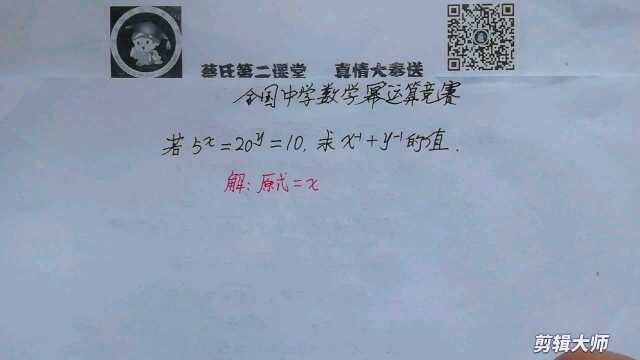 蔡氏第二课堂 真情大奉送
全国中学数学幂运算竞赛
若5ˣ=20ʸ=10,求x⁻¹+y⁻¹的值.
解:原式=x
剪辑大师